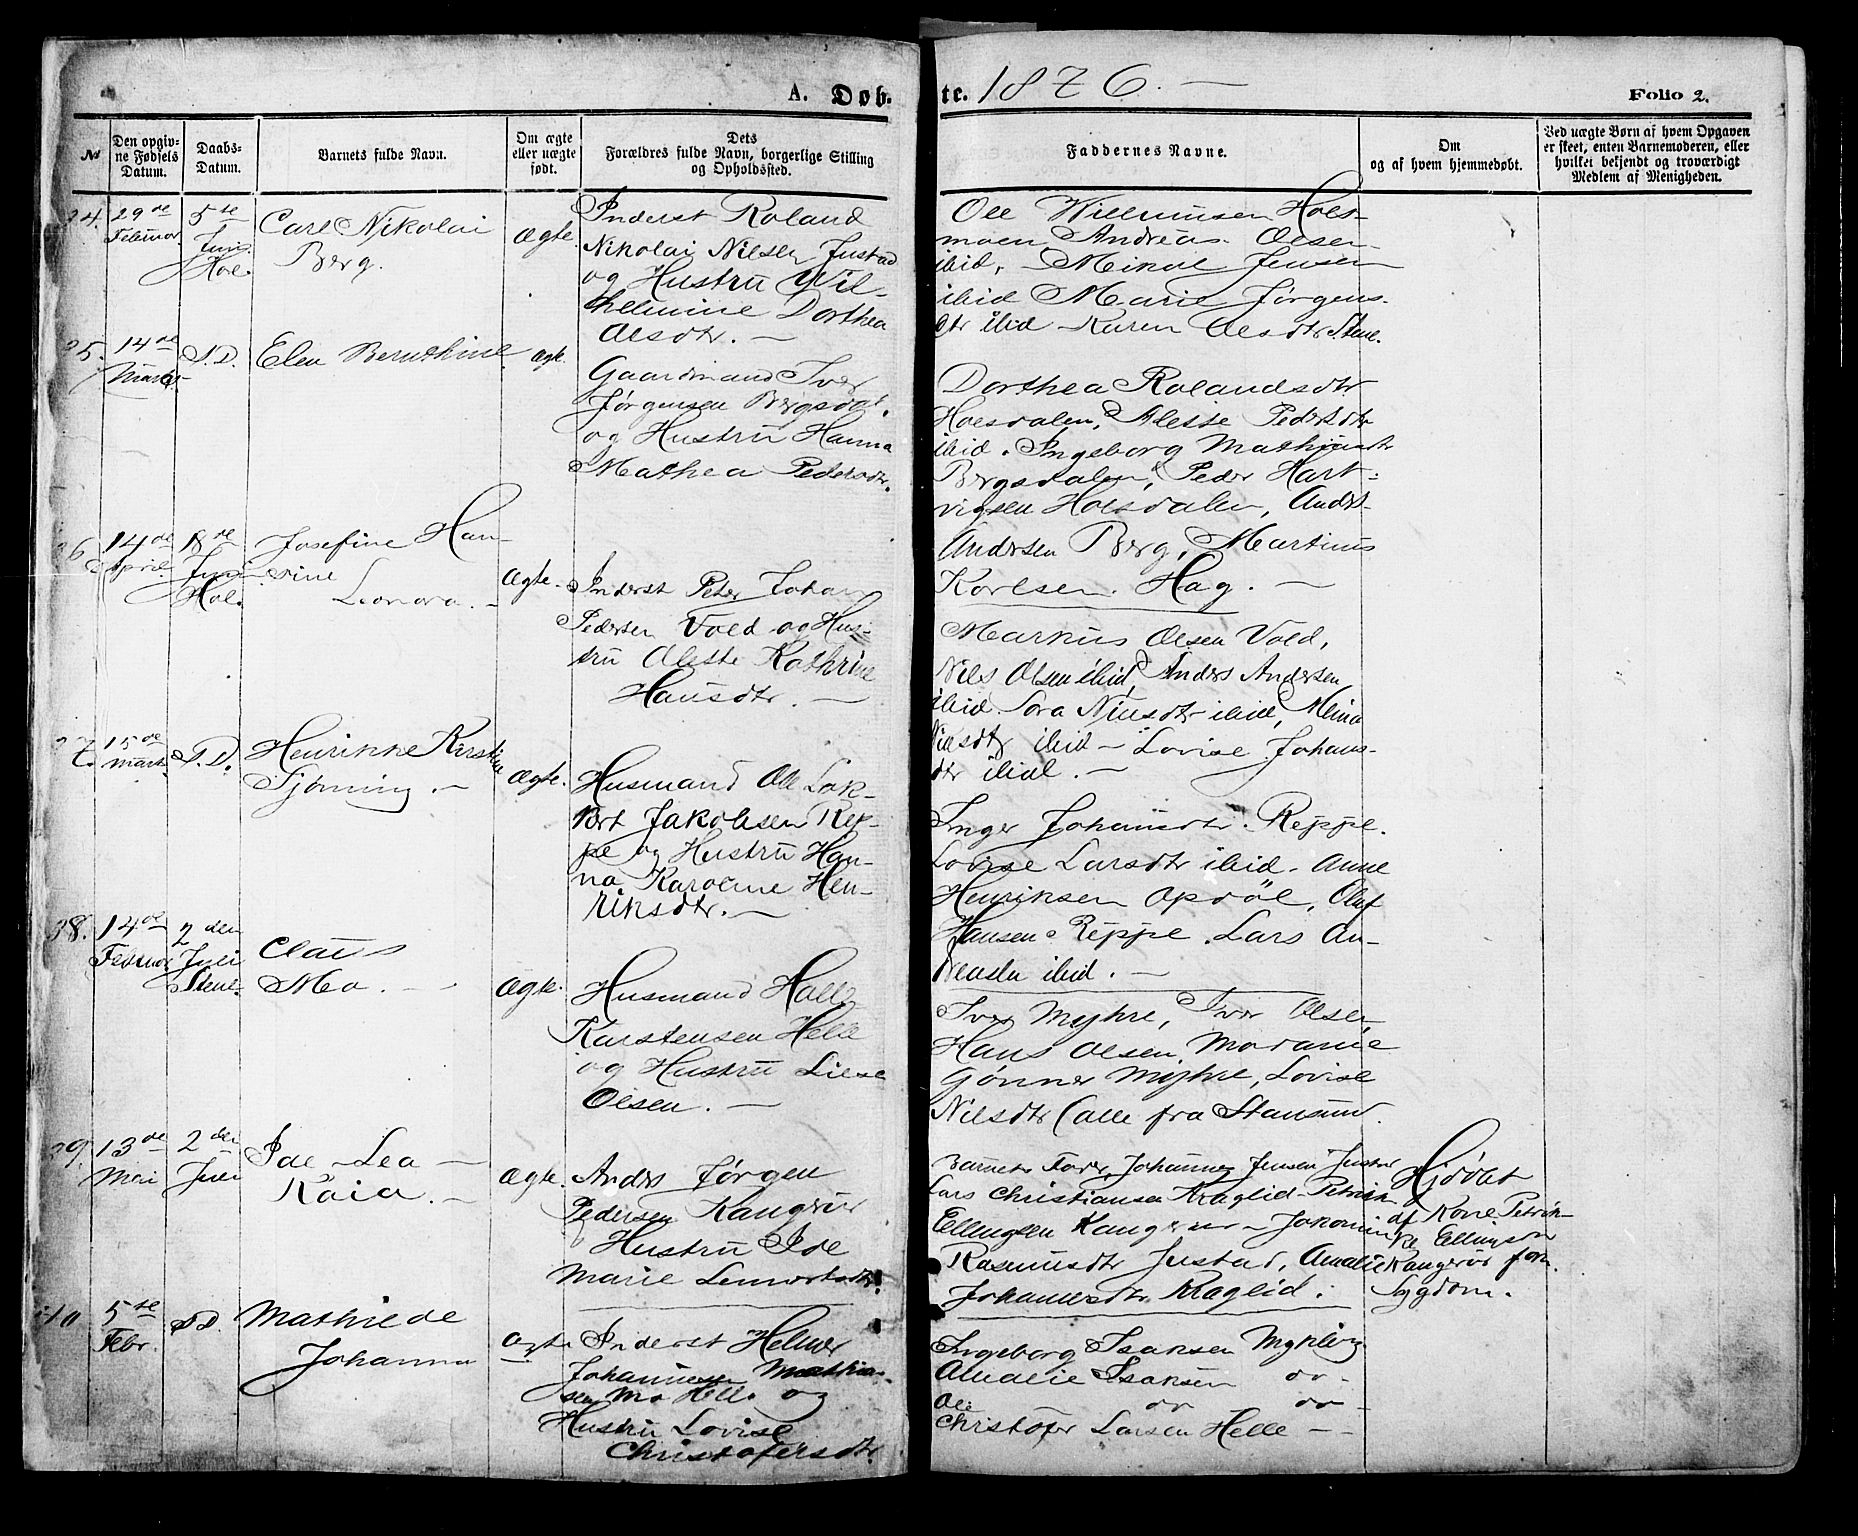 A. Døb.
te. 1876. —
Folio 2.
№
Den opgiv-
ne Fødsels
Datum.
Daabs-
Datum.
Barnets fulde Navn.
Om ægte
eller uægte
født.
Dets
Forældres fulde Navn, borgerlige Stilling
og Opholdssted.
Faddernes Navne.
Om
og af hvem hjemmedøbt.
Ved uægte Børn af hvem Opgaven
er skeet, enten Barnemoderen, eller
hvilket bekjendt og troværdigt
Medlem af Menigheden.
29de
Februar
5te
Juni
Hol.
Carl Nikolai
Berg.
Ægte
Inderst Roland
Nikolai Nilsen Justad
og Hustru Wil-
helmine Dorthea
Olsdtr. —
Ole Willumsen Hols-
moen, Andreas Olsen
ibid, Mikal Jensen
ibid Marie Jørgens-
dtr ibid Karen Olsdtr Stene.
25.
14de
Marts
S.D.
Elen Bernthine
Ægte.
Gaardmand Iver
Jørgensen Bergsdal.
og Hustru Hanna
Mathea Pedersdtr.
Dorthea Rolandsdtr
Holsdalen, Alette Pedersdtr
ibid. Ingeborg Mathiasdtr
Bergsdalen, Peder Hart-
vigsen Holsdalen, Anders
Andersen Berg, Martinus
Karlsen. Hag. —
14de
April
18de
Juni
Hol.
Josefine Han-
sine
Leonora. —
Ægte.
Inderst Peter Johan
Pedersen Vold og Hus-
tru Alette Kathrine
Hansdtr. —
Markus Olsen Vold,
Nils Olsen ibid, Anders Andersen
ibid. Lora Nilsdtr ibid, Meina
Nilsdtr ibid — Lovise Johans-
dtr ibid. —
27.
15de
Marts
S.D.
Henrikke Kirstine
Tjønning. —
Ægte.
Husmand Ole Lok-
bert Jakobsen Rep-
pe og Hustru Han-
na Karoline Hen-
riksdtr. —
Inger Johansdtr. Reppe.
Lovise Larsdtr ibid. Anne
Henriksen Opdøl, Olaf
Hansen Reppe. Lars An-
dreasen ibid. —
38.
14de
Februar
2den
Juli
Stene.
Claus
Meo. —
Ægte.
Husmand Halle
Karstensen Helle
og Hustru Liese
Olsen. —
Iver Myhre, Iver Olsen,
Hans Olsen, Mordanie
Gønner Myhre, Lovise
Nilsdtr (alle fra Stamsund.
39.
13de
Mai
2den
Juli
Ide Lea —
Kaia. —
Ægte.
Anders Jørgen
Pedersen Kangerur
Hustru Ide
Marie Lennertsdtr.
Barnets Fader, Johannes Jensen Justad
Lars Christiansen Kraglid — Petrik
Ellingsen Kangerur — Jakomine
Rasmusdtr Justad, Amalie
Johannesdtr Kraglid.
Hjdøbt
af Kone Petrik-
ke Ellingsdtr
Kangerur form.
Sygdom.
40
5te
Febr.
S.D.
Mathilde
Johanna
Ægte
Inderst Helmer
Johannesen Mathia-
sen Mo Helle og
Hustru Lovise
Christofersdtr.
Ingeborg Isaksen Myklevig
Amalie Isaksen do -
Ole do do -
Christofer Larsen Helle - -